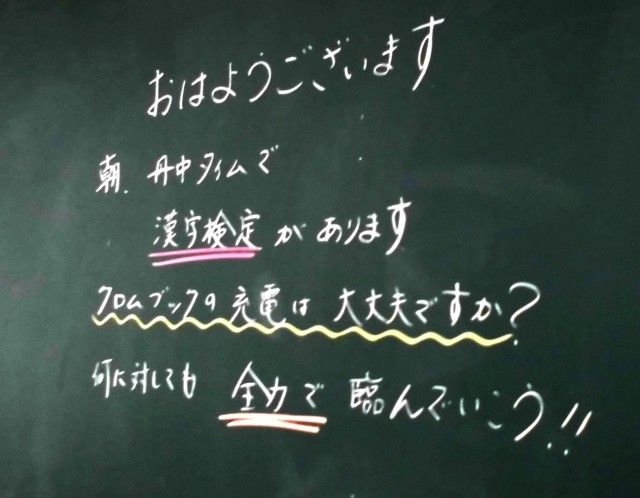 おはようございます
朝. 丹中タイムで
漢字検定があります
クロムブックの充電は大丈夫ですか?
何に対しても全力で臨んでいこう!!